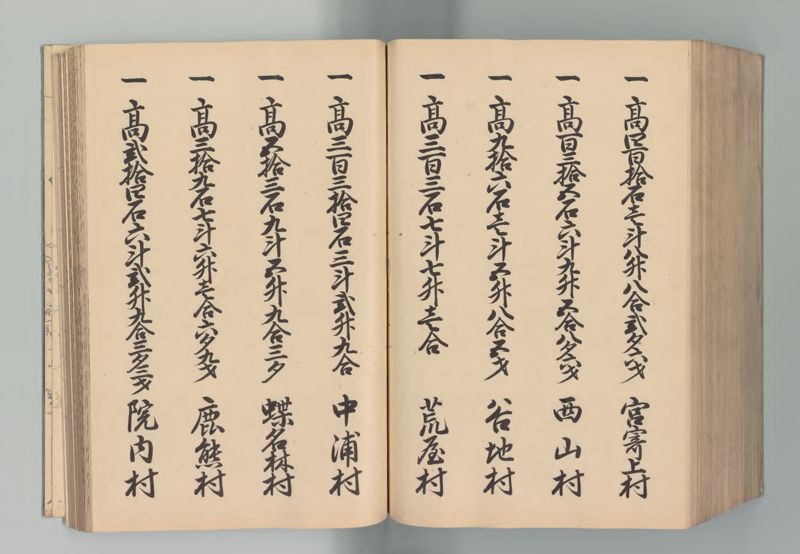 一 高四百拾石壱斗八升八合弐夕六才 宮寄上村
一 高百三拾五石六斗九升五合八夕六才 西山村
一 高九拾六石壱斗五升八合五才 谷地村
一 高三百三石七斗七升壱合 荒屋村
一 高三百三拾四石三斗弐升九合 中浦村
一 高五拾三石九斗五升九合三夕 蝶名林村
一 高三拾九石七斗六升壱合六夕九才 鹿熊村
一 高弐拾四石六斗弐升九合三夕三才 院内村